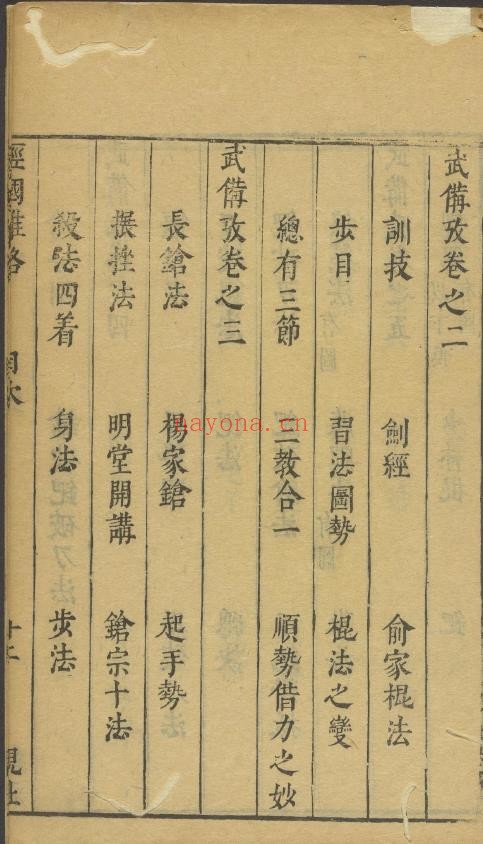 武備攷卷之二
訓技 劍經 俞家棍法
步目 習法圖勢 棍法之變
總有三節 三教合一 順勢借力之妙
武備攷卷之三
長鎗法 楊家鎗 起手勢
撰挫法 明堂開講 鎗宗十法
殺法四着 身法 步法
經國雄略 目次 十二 觀社
nayona.cn